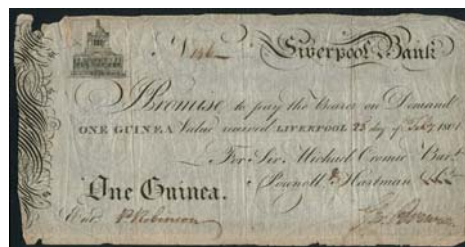 No. 146 Liverpool Bank
I Promise to pay the Bearer on Demand
ONE GUINEA Value received LIVERPOOL 23 day of Feby 1801
For Sir Michael Cromie Bart.
Pownoll & Hartman
One Guinea.
Entd. P Robinson